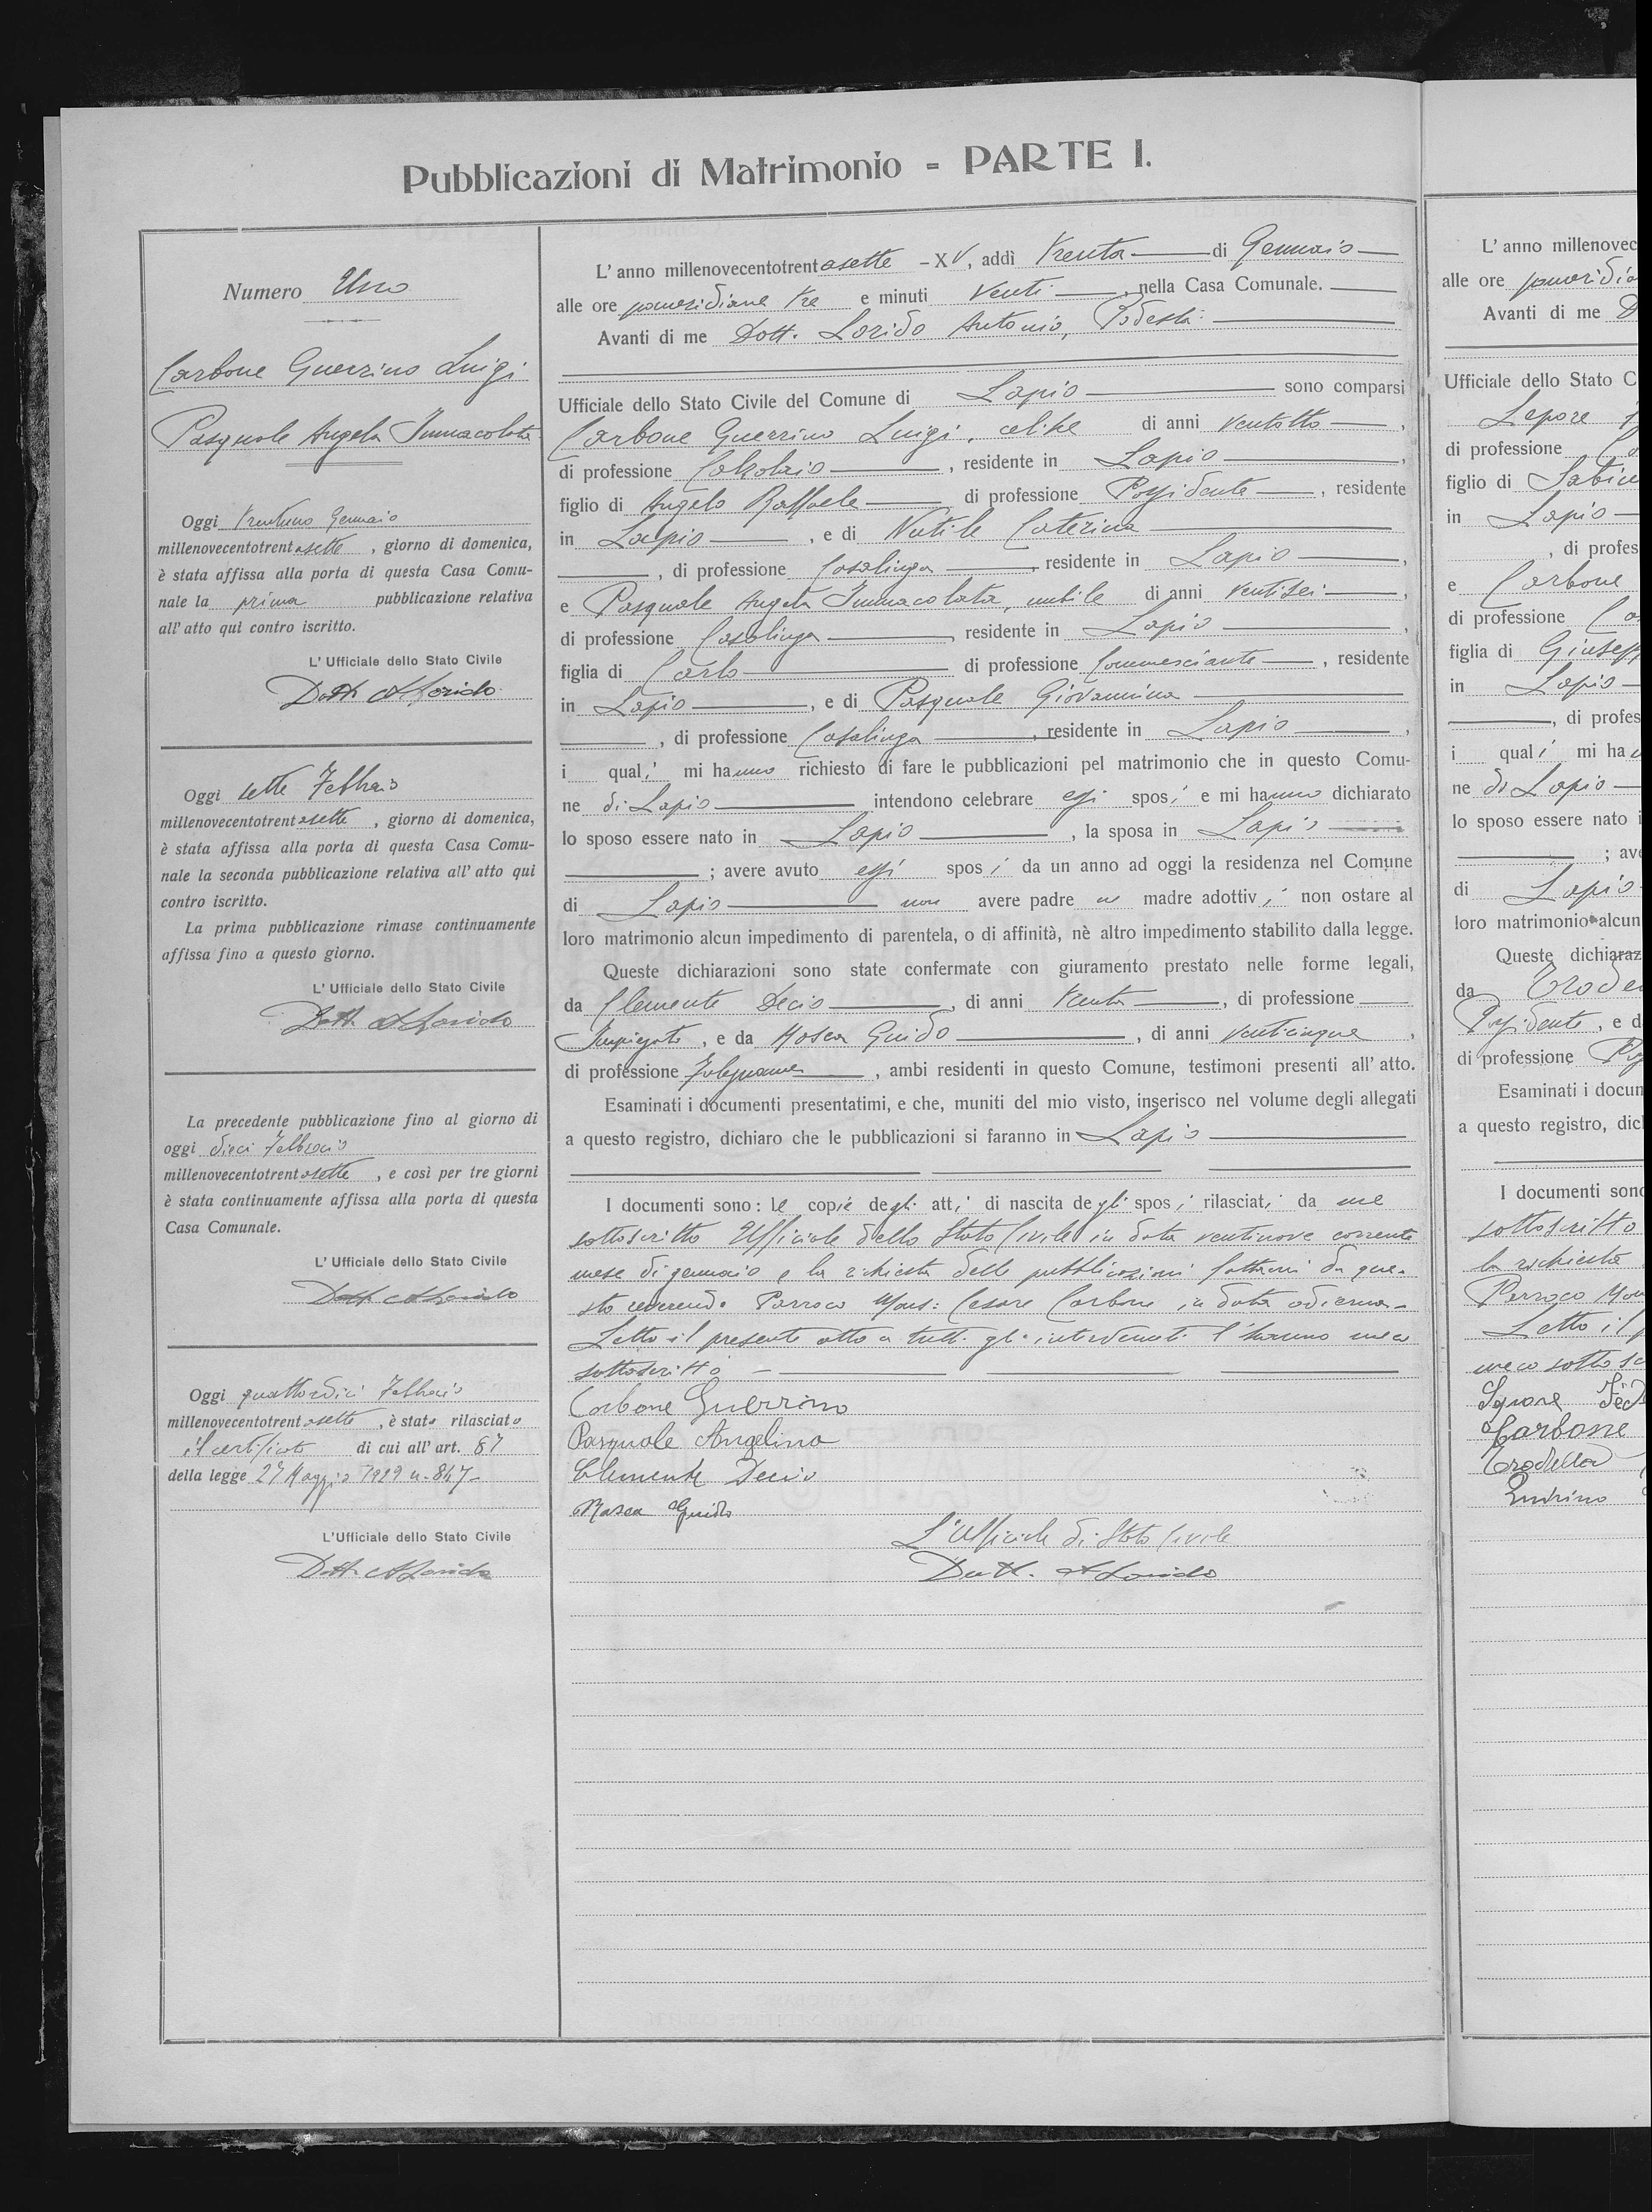 Pubblicazioni di Matrimonio - PARTE I.
Numero Uno
Carbone Guerrino Luigi
Pasquale Angela Immacolata
Oggi trentuno Gennaio
millenovecentotrentasette, giorno di domenica,
è stata affissa alla porta di questa Casa Comu-
nale la prima pubblicazione relativa
all'atto qui contro iscritto.
L'Ufficiale dello Stato Civile
Dott. A Lorido
Oggi sette Febbraio
millenovecentotrentasette, giorno di domenica,
è stata affissa alla porta di questa Casa Comu-
nale la seconda pubblicazione relativa all'atto qui
contro iscritto.
La prima pubblicazione rimase continuamente
affissa fino a questo giorno.
L'Ufficiale dello Stato Civile
Dott. A Lorido
La precedente pubblicazione fino al giorno di
oggi dieci Febbraio
millenovecentotrentasette, e così per tre giorni
è stata continuamente affissa alla porta di questa
Casa Comunale.
L'Ufficiale dello Stato Civile
Dott. A Lorido
Oggi quattordici Febbraio
millenovecentotrentasette, è stato rilasciato
il certificato di cui all'art. 87
della legge 27 Maggio 1929 n. 847-
L'Ufficiale dello Stato Civile
Dott. A Lorido
L'anno millenovecentotrentasette - XV, addì trenta di Gennaio
alle ore pomeridiane tre e minuti venti, nella Casa Comunale.
Avanti di me Dott. Lorido Antonio, Podestà
Ufficiale dello Stato Civile del Comune di Lapio sono comparsi
Carbone Guerrino Luigi, celibe di anni ventotto,
di professione Calzolaio, residente in Lapio,
figlio di Angelo Raffaele di professione Possidente, residente
in Lapio, e di Natile Caterina
, di professione Casalinga, residente in Lapio,
e Pasquale Angela Immacolata, nubile di anni ventisei,
di professione Casalinga, residente in Lapio,
figlia di Carlo di professione Commerciante, residente
in Lapio, e di Pasquale Giovannina
, di professione Casalinga, residente in Lapio,
i quali mi hanno richiesto di fare le pubblicazioni pel matrimonio che in questo Comu-
ne di Lapio intendono celebrare essi sposi e mi hanno dichiarato
lo sposo essere nato in Lapio, la sposa in Lapio
; avere avuto essi sposi da un anno ad oggi la residenza nel Comune
di Lapio non avere padre ne madre adottivi non ostare al
loro matrimonio alcun impedimento di parentela, o di affinità, nè altro impedimento stabilito dalla legge.
Queste dichiarazioni sono state confermate con giuramento prestato nelle forme legali,
da Clemente Decio, di anni trenta, di professione
Impiegato, e da Mosca Guido, di anni venticinque,
di professione Falegname, ambi residenti in questo Comune, testimoni presenti all'atto.
Esaminati i documenti presentatimi, e che, muniti del mio visto, inserisco nel volume degli allegati
a questo registro, dichiaro che le pubblicazioni si faranno in Lapio
I documenti sono: le copie degli atti di nascita degli sposi rilasciati da me
sottoscritto Ufficiale dello Stato Civile in data ventinove corrente
mese di gennaio e la richiesta delle pubblicazioni fattami da que-
sto reverendo Parroco Mons: Cesare Carbone in data odierna-
Letto il presente atto a tutti gli intervenuti l'hanno meco
sottoscritto -
Carbone Guerrino
Pasquale Angelina
Clemente Decio
Mosca Guido
L'Ufficiale di Stato Civile
Dott. A Lorido
L'anno millenovec
alle ore pomeridia
Avanti di me D
Ufficiale dello Stato C
Lepore
di professione
figlio di Sabino
in Lapio
, di profes
e Carbone
di professione
figlia di Giusepp
in Lapio
, di profes
i quali mi ha
ne di Lapio
lo sposo essere nato i
; ave
di Lapio
loro matrimonio alcun
Queste dichiaraz
da
Possidente, e d
di professione
Esaminati i docum
a questo registro, dich
I documenti sono
sottoscritto
la richiesta
Parroco Mon
Letto il p
meco sottosc
Carbone